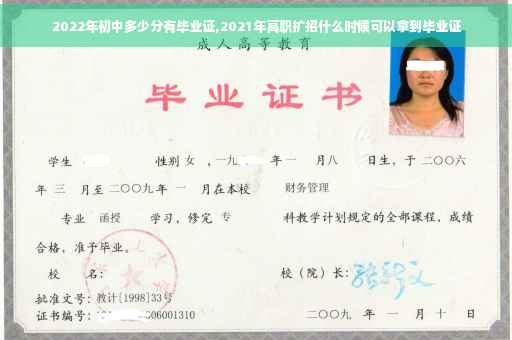 2022年初中多少分有毕业证,2021年高职扩招什么时候可以拿到毕业证
成人高等教育
毕业证书
学生 性别 女 ,一九 年一 月八 日生，于二〇〇六
年 三 月至二〇〇九年 一 月在本校 财务管理
专业 函授 学习，修完 专 科教学计划规定的全部课程，成绩
合格，准予毕业。
校 名： 校（院）长：
批准文号：教计[1998]33号
证书编号： 06001310 二〇〇九 年 一 月 十 日